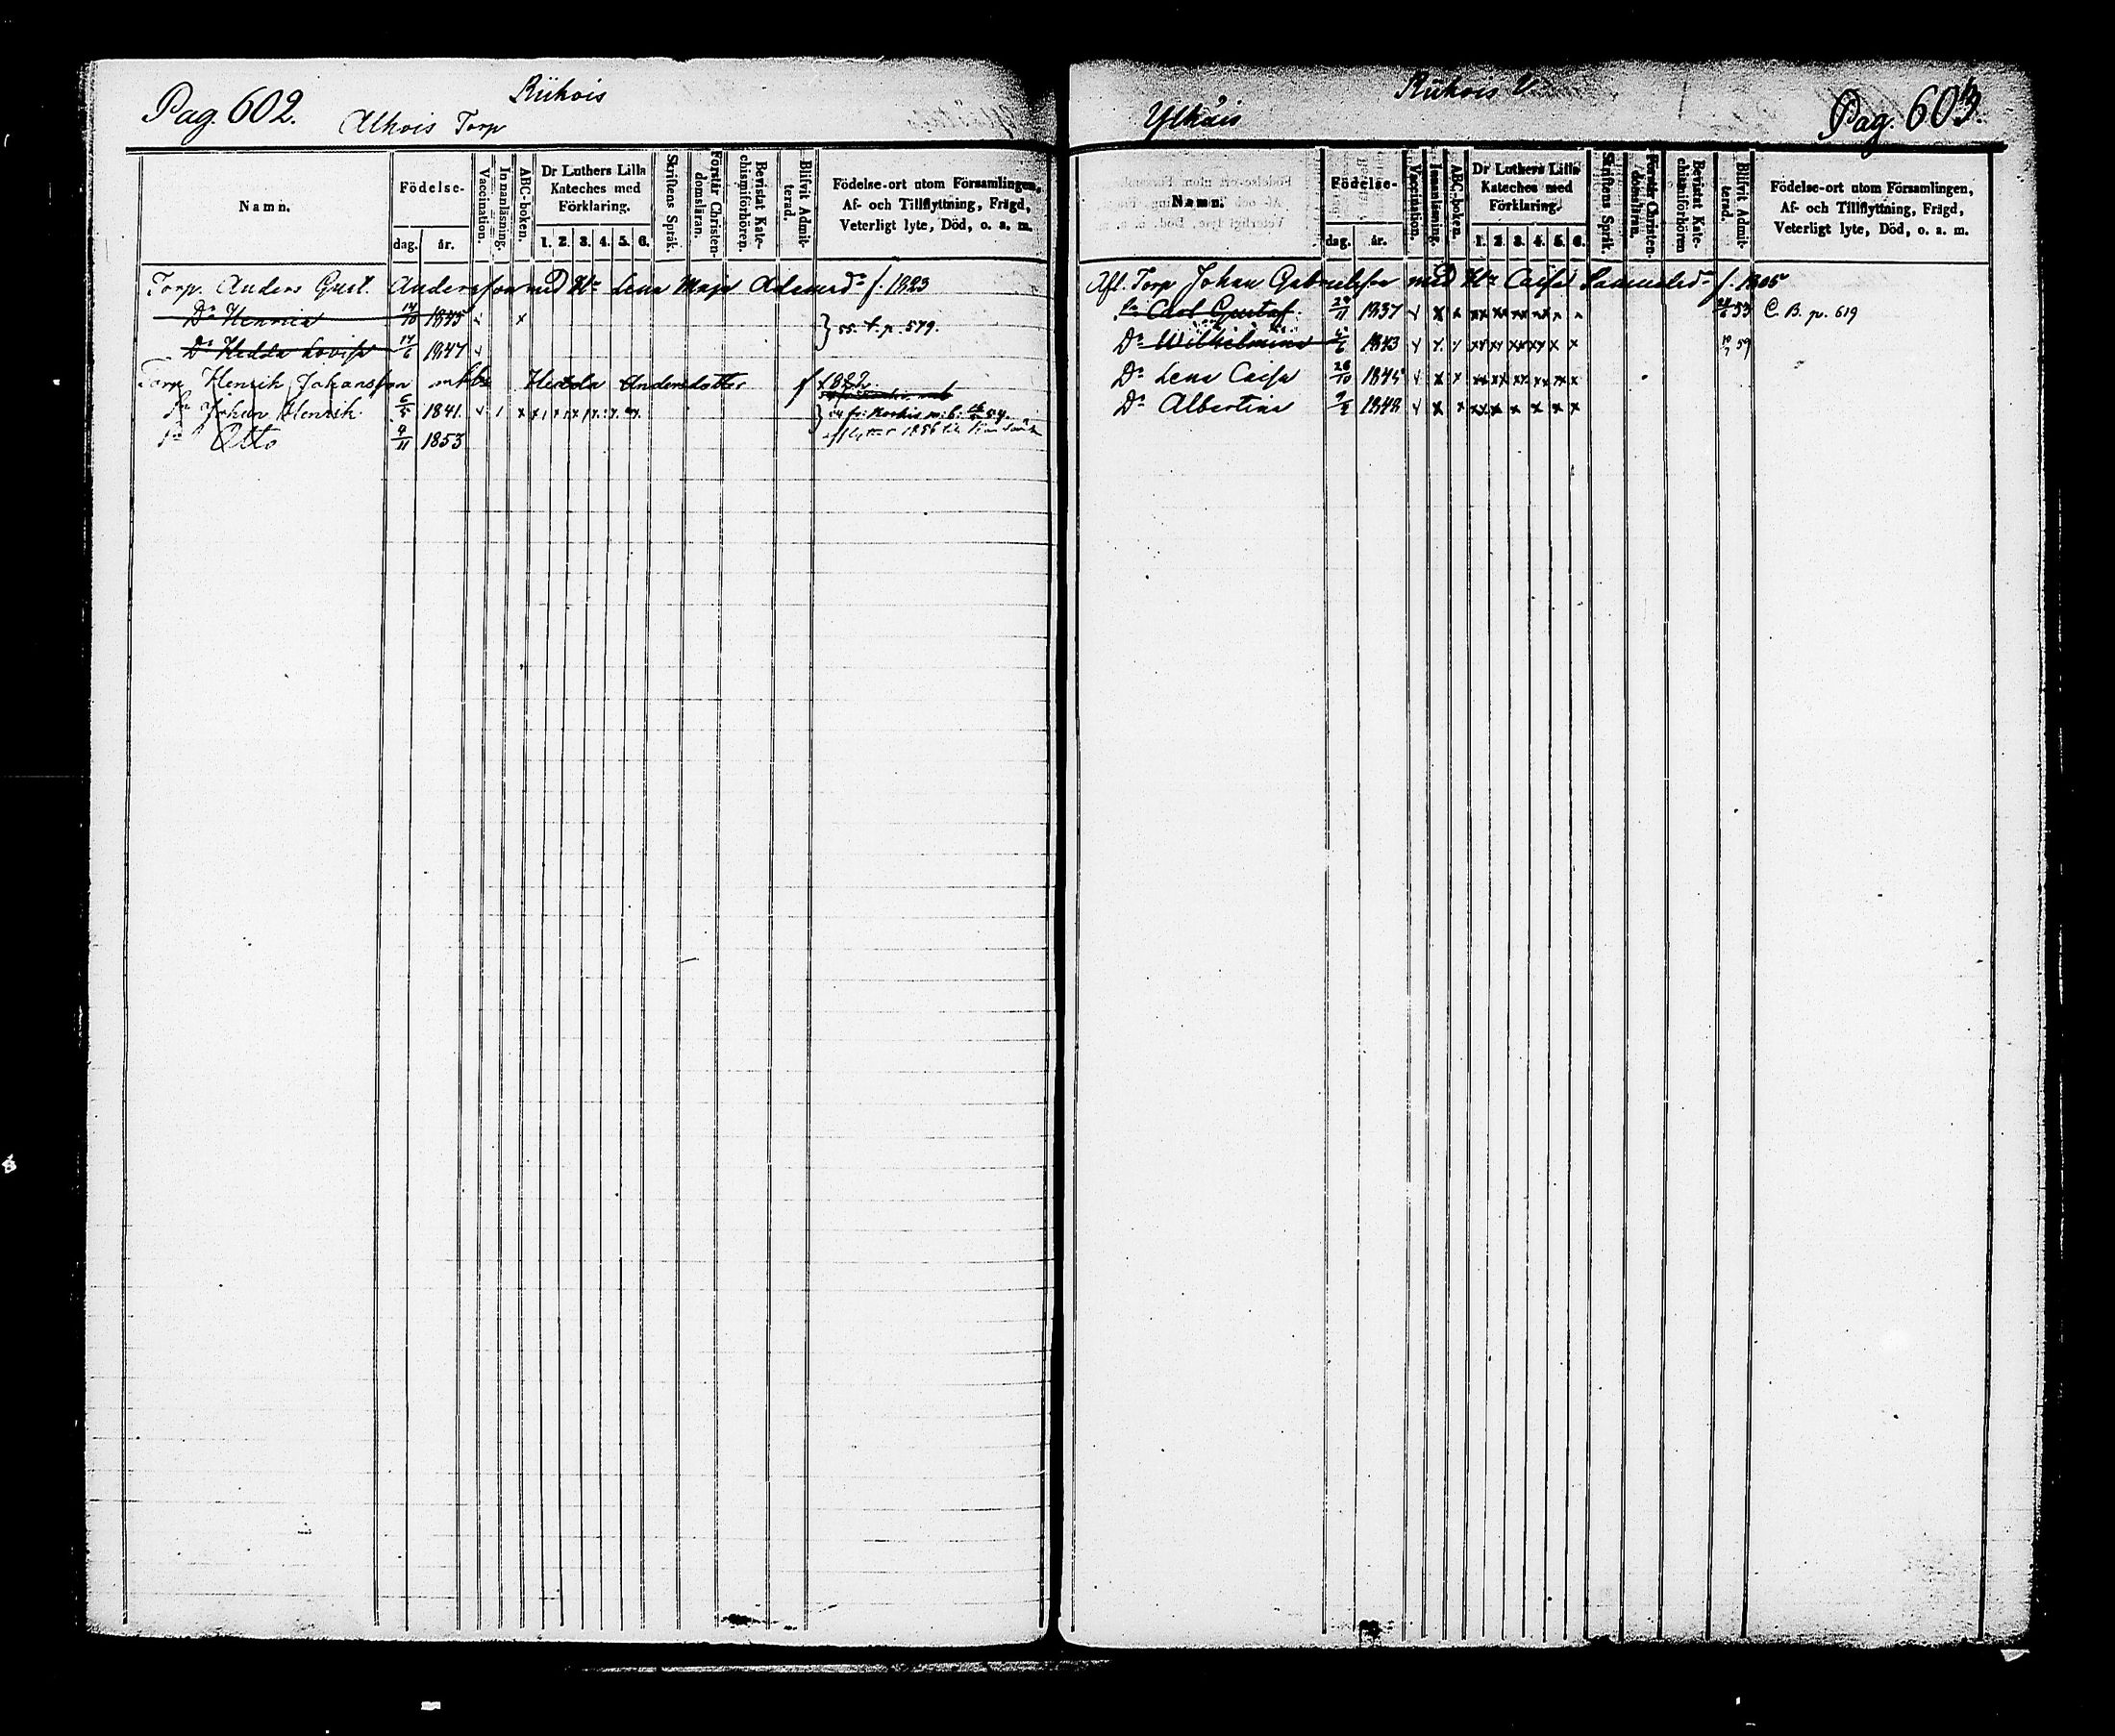 Pag. 602.
Riihois
Alhois Torp
Namn.
Födelse-
dag.
år.
Vaccination.
Innanläsning.
ABC-boken.
Dr Luthers Lilla
Kateches med
Förklaring.
1. 2. 3. 4. 5. 6.
Skriftens Språk.
Förstår Christen-
domsläran.
Bevistat Kate-
chismiförhören.
Blifvit Admit-
terad.
Födelse-ort utom Församlingen,
Af- och Tillflyttning, Frägd,
Veterligt lyte, Död, o. a. m.
Torp. Anders Gust. Andersson med Hu Lena Maja Adamsdr f. 1823
Dr Henrica 14/10 1845 v x
} 55. t. p. 579.
Dr Hedda Lovisa 14/6 1847 v
Torp Henrik Johansson m hu Hedda Andersdotter f 1822
Sn Johan Henrik 6/5 1841. v
Sn Otto 9/11 1853
Riihois
Ylhäis
Pag. 603.
Namn.
Födelse-
dag.
år.
Vaccination.
Innanläsning.
ABC-boken.
Dr Luthers Lilla
Kateches med
Förklaring.
1. 2. 3. 4. 5. 6.
Skriftens Språk.
Förstår Christen-
domsläran.
Bevistat Kate-
chismiförhören
Blifvit Admit-
terad.
Födelse-ort utom Församlingen,
Af- och Tillflyttning, Frägd,
Veterligt lyte, Död, o. a. m.
Afl. Torp Johan Gabrielsson med Hu Caisa Samuelsd f. 1805
Sn Carl Gustaf 1837 v x x xx xx xx xx x x 53 C. B. p. 619
Dr Wilhelmina 1843 v x x xx xx xx xx x x 59
Dr Lena Caisa 28/10 1845 v x x xx xx xx xx xx x
Dr Albertina 1848 v x x xx x x x x x